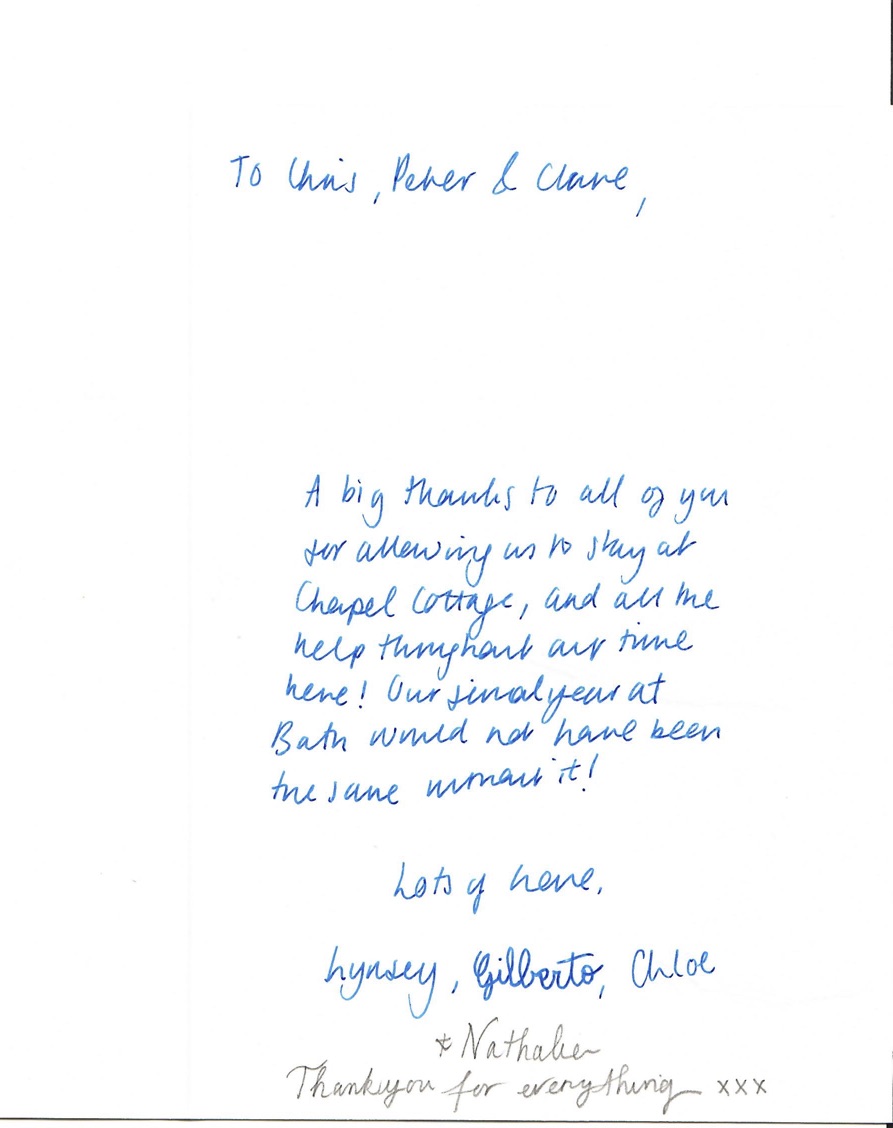 To Chris, Peter & Clare,
A big thanks to all of you
for allowing us to stay at
Chapel Cottage, and all the
help throughout our time
here! Our final year at
Bath would not have been
the same without it!
Lots of love,
Lynsey, Gilberto, Chloe
& Nathalie
Thankyou for everything xxx